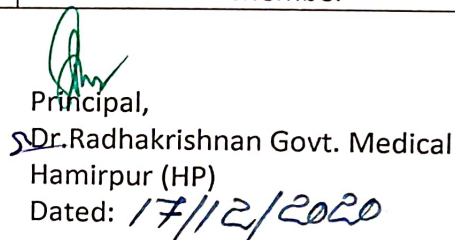 Principal,
Dr.Radhakrishnan Govt. Medical
Hamirpur (HP)
Dated: 17/12/2020